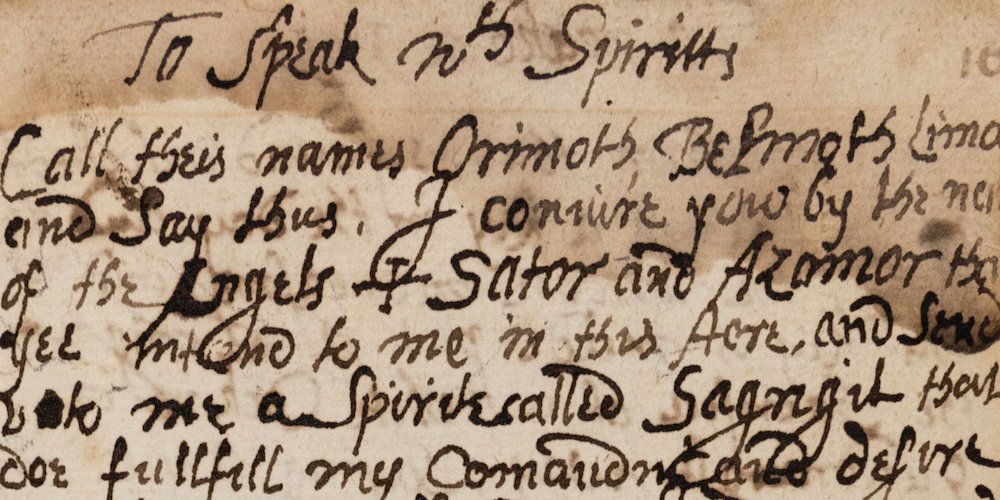 To Speak wth Spiritts
Call theis names Orimoth, Belmoth Limo
and Say thus. I coniure yow by the ne
of the Angels ☩ Sator and Azamor tha
yee intend to me in this Aere, and Send
vnto me a Spirite called Sagngit that
doe fullfill my Comaundm and desire